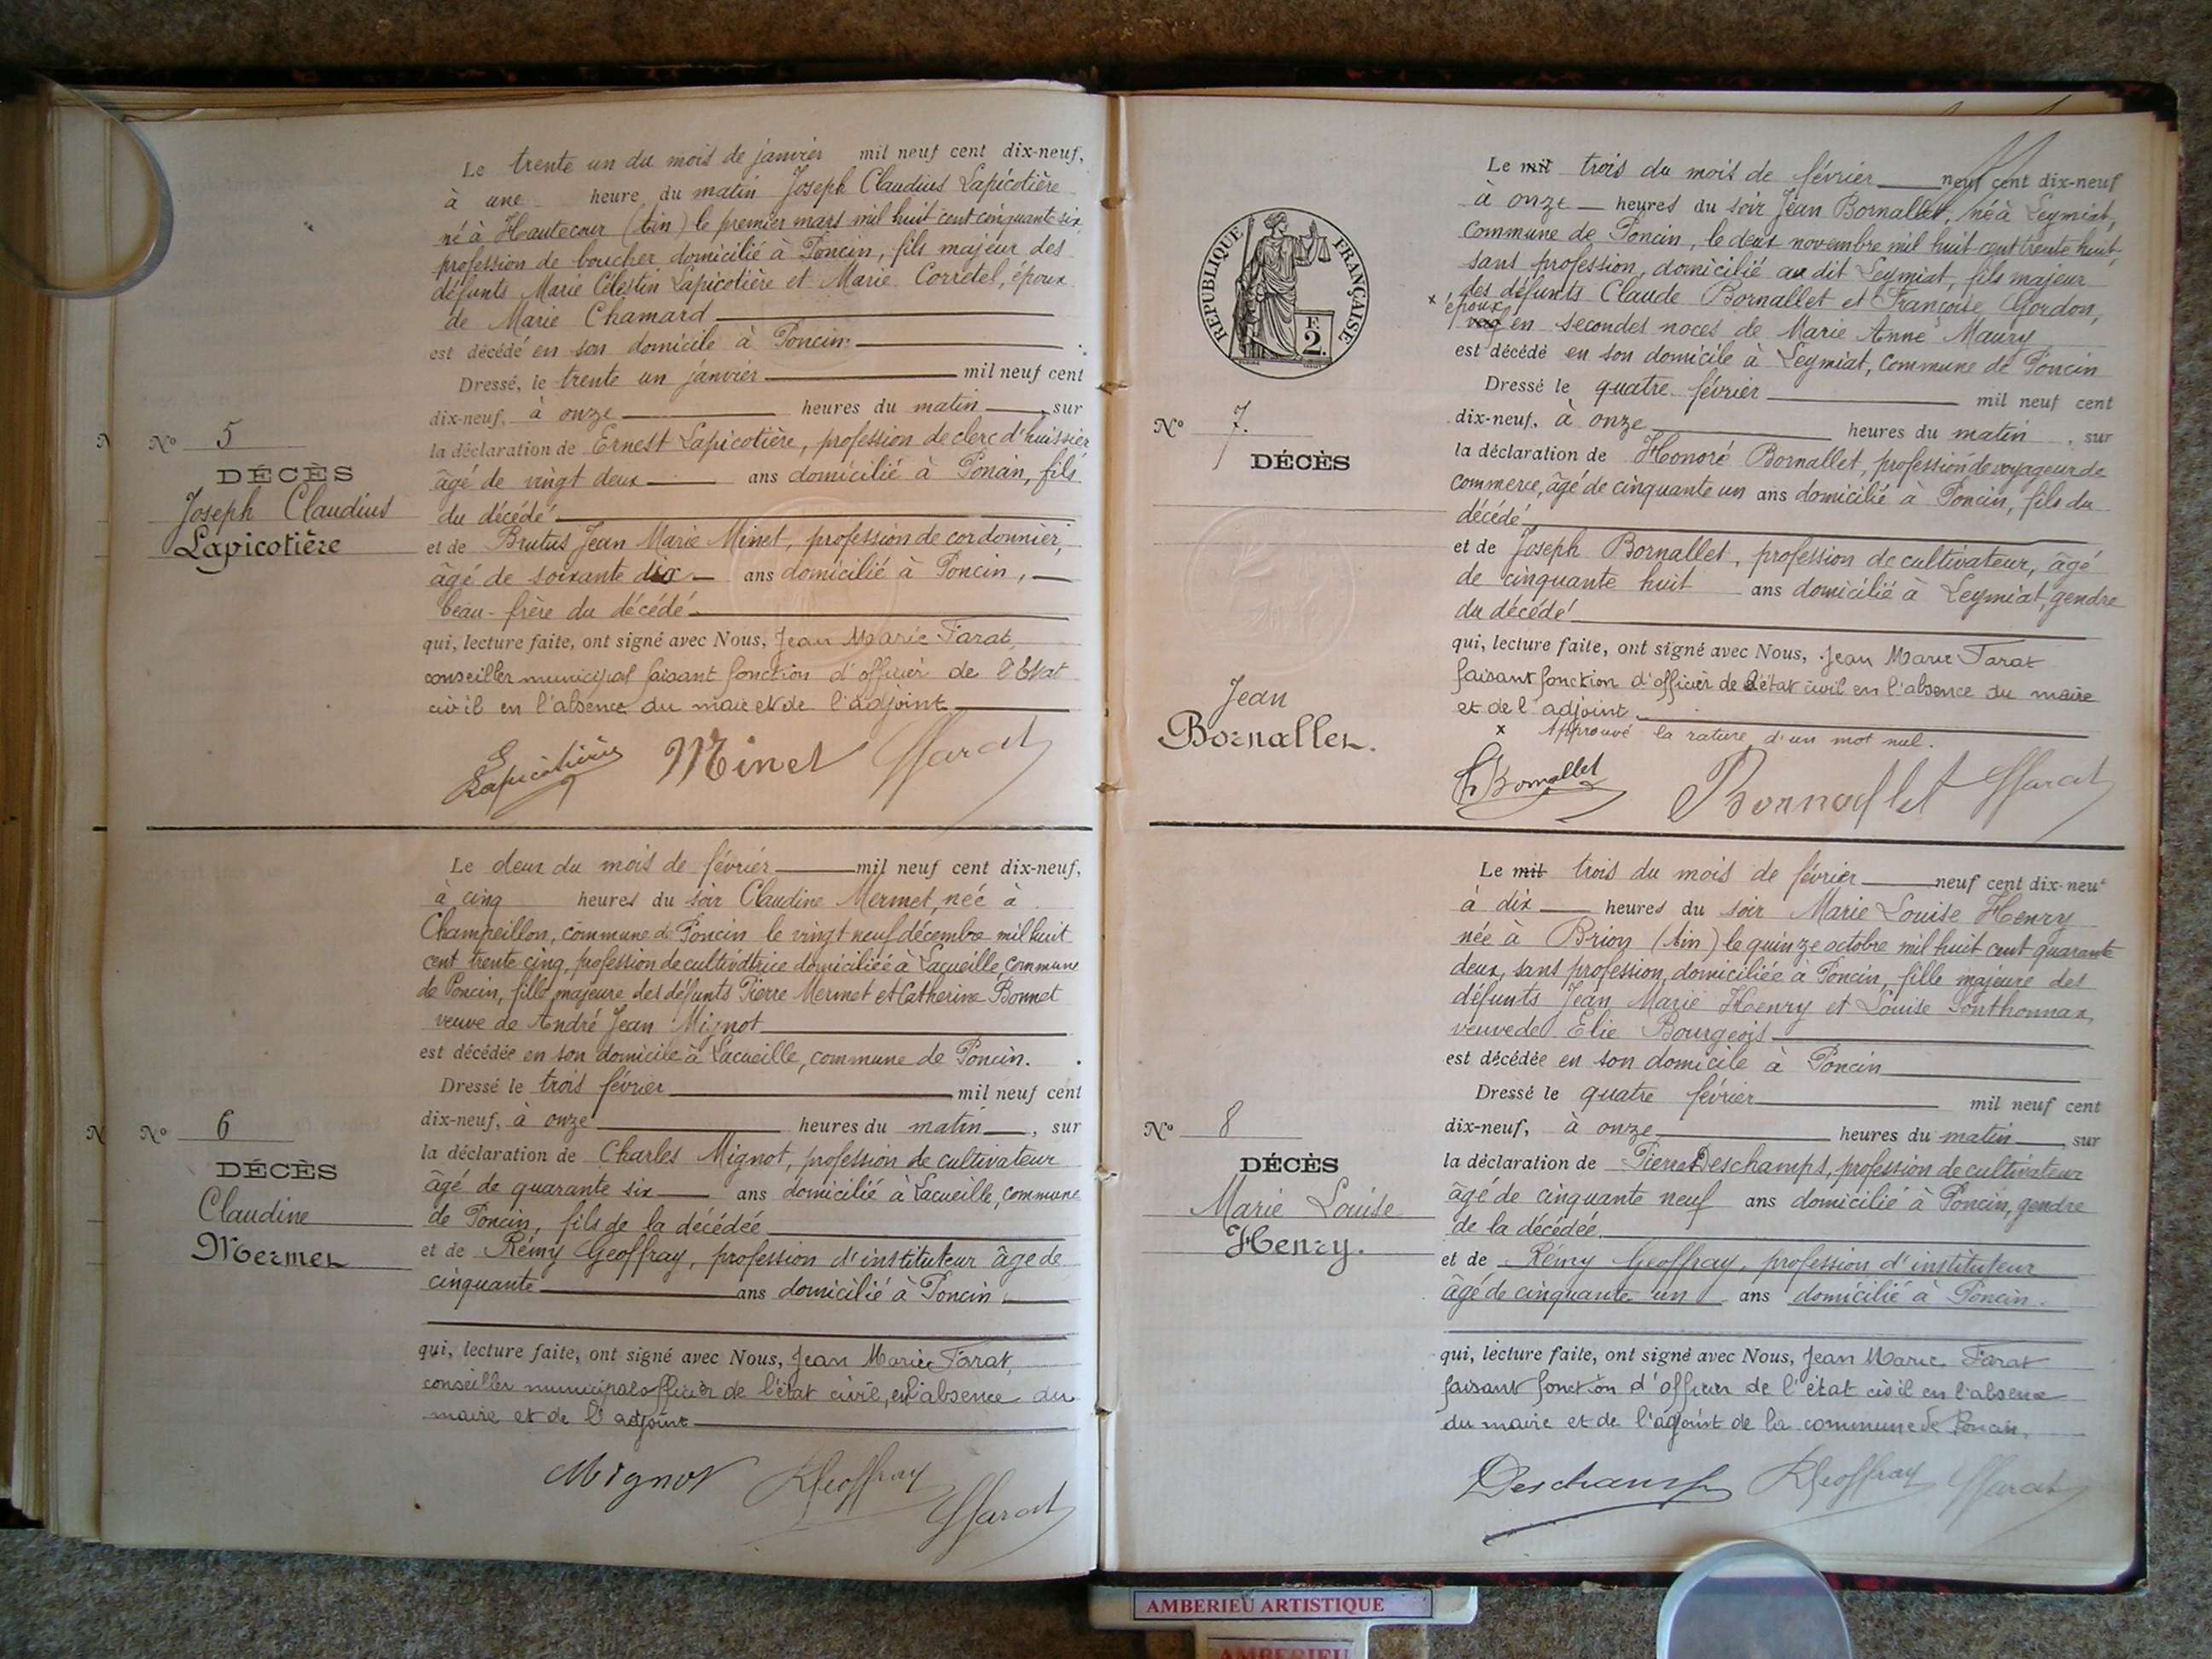 Le trente un du mois de janvier mil neuf cent dix-neuf,
à une heure du matin Joseph Claudius Lapicotière
né à Hautecour (Ain) le premier mars mil huit cent cinquante six,
profession de boucher domicilié à Poncin, fils majeur des
défunts Marie Célestin Lapicotière et Marie Corretel, époux
de Marie Chamard
est décédé en son domicile à Poncin.
Dressé, le trente un janvier mil neuf cent
dix-neuf, à onze heures du matin, sur
la déclaration de Ernest Lapicotière, profession de clerc d'huissier
âgé de vingt deux ans domicilié à Poncin, fils
du décédé
et de Brutus Jean Marie Minet, profession de cordonnier,
âgé de soixante dix ans domicilié à Poncin,
beau-frère du décédé
qui, lecture faite, ont signé avec Nous, Jean Marie Farat,
conseiller municipal faisant fonction d'officier de l'Etat
civil en l'absence du maire et de l'adjoint
E Lapicotière Minet JFarat
N° 5
DÉCÈS
Joseph Claudius
Lapicotière
Le deux du mois de février mil neuf cent dix-neuf,
à cinq heures du soir Claudine Mermet, née à
Champeillon, commune de Poncin le vingt neuf décembre mil huit
cent trente cinq, profession de cultivatrice domiciliée à Lacueille, commune
de Poncin, fille majeure des défunts Pierre Mermet et Catherine Bonnet
veuve de André Jean Mignot
est décédée en son domicile à Lacueille, commune de Poncin.
Dressé le trois février mil neuf cent
dix-neuf, à onze heures du matin, sur
la déclaration de Charles Mignot, profession de cultivateur
âgé de quarante six ans domicilié à Lacueille, commune
de Poncin, fils de la décédée
et de Rémy Geoffray, profession d'instituteur âgé de
cinquante ans domicilié à Poncin
qui, lecture faite, ont signé avec Nous, Jean Marie Farat,
conseiller municipal officier de l'état civil, en l'absence du
maire et de l'adjoint
Mignot RGeoffray JFarat
N° 6
DÉCÈS
Claudine
Mermet
REPUBLIQUE FRANÇAISE
2
Le mil trois du mois de février neuf cent dix-neuf
à onze heures du soir Jean Bornallet, né à Leymiat,
commune de Poncin, le deux novembre mil huit cent trente huit,
sans profession, domicilié au dit Leymiat, fils majeur
des défunts Claude Bornallet et Françoise Gordon,
x époux
en secondes noces de Marie Anne Maury
est décédé en son domicile à Leymiat, commune de Poncin
Dressé le quatre février mil neuf cent
dix-neuf, à onze heures du matin, sur
la déclaration de Honoré Bornallet, profession de voyageur de
commerce, âgé de cinquante un ans domicilié à Poncin, fils du
décédé
et de Joseph Bornallet, profession de cultivateur, âgé
de cinquante huit ans domicilié à Leymiat, gendre
du décédé
qui, lecture faite, ont signé avec Nous, Jean Marie Farat
faisant fonction d'officier de l'état civil en l'absence du maire
et de l'adjoint
x Approuvé la rature d'un mot nul.
h Bornallet Bornallet JFarat
N° 7.
DÉCÈS
Jean
Bornallet.
Le mil trois du mois de février neuf cent dix-neuf
à dix heures du soir Marie Louise Henry
née à Brion (Ain) le quinze octobre mil huit cent quarante
deux, sans profession, domiciliée à Poncin, fille majeure des
défunts Jean Marie Henry et Louise Sonthonnax,
veuve de Elie Bourgeois
est décédée en son domicile à Poncin
Dressé le quatre février mil neuf cent
dix-neuf, à onze heures du matin, sur
la déclaration de Pierre Deschamps, profession de cultivateur
âgé de cinquante neuf ans domicilié à Poncin, gendre
de la décédée.
et de Rémy Geoffray, profession d'instituteur
âgé de cinquante un ans domicilié à Poncin.
qui, lecture faite, ont signé avec Nous, Jean Marie Farat
faisant fonction d'officier de l'état civil en l'absence
du maire et de l'adjoint de la commune de Poncin.
Deschamps RGeoffray JFarat
N° 8
DÉCÈS
Marie Louise
Henry.
AMBERIEU ARTISTIQUE
AMBERIEU